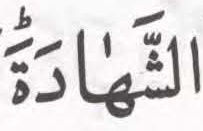 الشَّهٰادَةَؕ